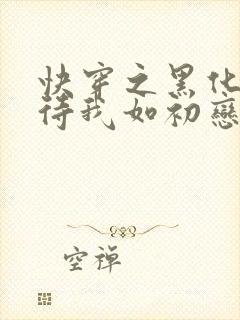 快穿之黑化
待我如初戀
空禅